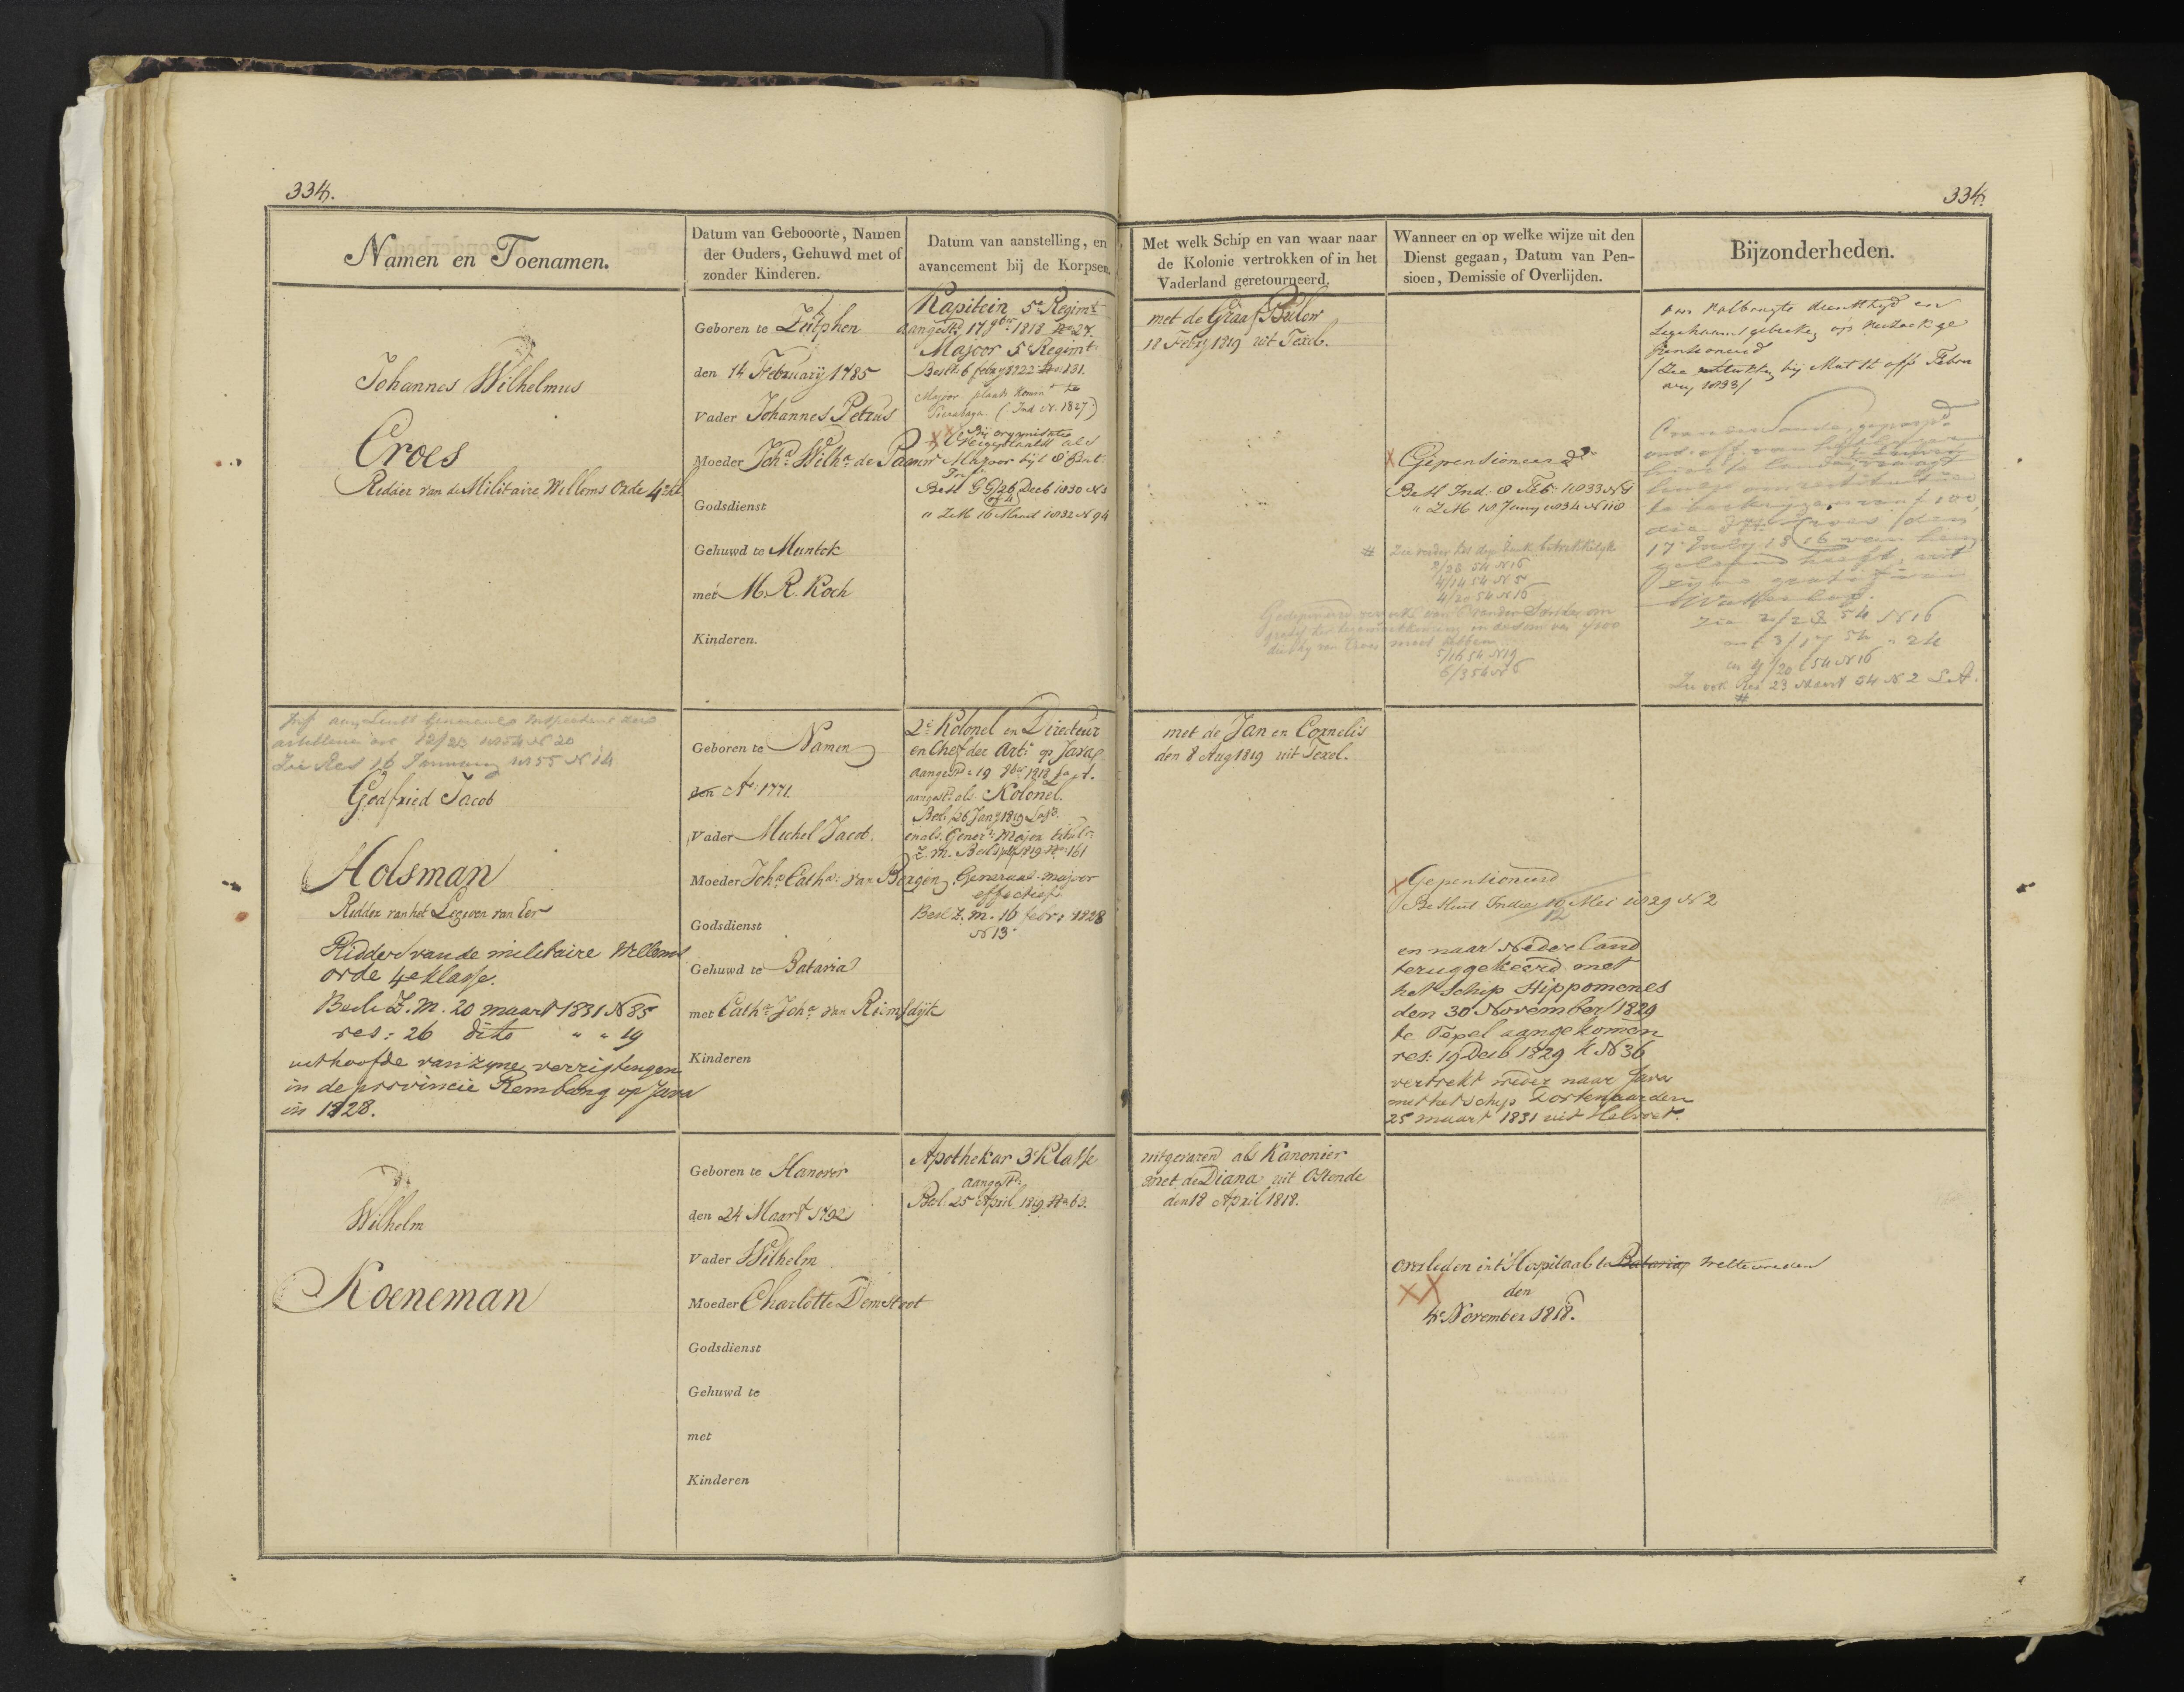 334.
334.
Namen en Toenamen.
Datum van Gebooorte, Namen
der Ouders, Gehuwd met of
zonder Kinderen.
Datum van aanstelling, en
avancement bij de Korpsen.
Met welk Schip en van waar naar
de Kolonie vertrokken of in het
Vaderland geretourneerd.
Wanneer en op welke wijze uit den
Dienst gegaan, Datum van Pen-
sioen, Demissie of Overlijden.
Bijzonderheden.
Johannes Wilhelmus
Croes
Ridder van de Militaire Willems Orde 4e Kl
Geboren te Zutphen
den 14 February 1785
Vader Johannes Petrus
Moeder Joha Wilha de Paauw
Godsdienst
Gehuwd te Muntok
met M. R. Koch
Kinderen.
Kapitein 5e Regimt
aangestd 17 9ber 1818 No 27.
Majoor 5e Regimt
Beslt 6 febry 1822 No 131.
Majoor plaats Komt te
(Ind. Nt. 1827)
Bij organisatie
als
Majoor bij t 8e Bat.
Inf
Besl GG 26 Decb 1830 N 3
" ZM 16 Maart 1832 N 94
met de Graaf Bulow
18 Febry 1819 uit Texel.
Gepensioneerd
Besl Ind. 8 Feb. 1833 N 9
" ZM 18 Juny 1834 N 118
# Zie verder het deze zaak betrekkelijk
2/28 54 N 16
4/14 54 N 5
4/20 54 N 16
5/16 54 N 19
6/3 54 N 6
diensttyd en
Ligchaamsgebreken op verzoek ge
pensioneerd
(Zie bij Mut St off Febru
ary 1833)
Zie 2/28 54 N 16
3/17 54 " 24
en 4/20 54 N 16
Zie ook Res 23 Maart 54 N 2 La A.
#
artillerie 12/28 1854 N 20
Zie Res 16 January 1855 N 14
Godfried Jacob
Holsman
Ridder van het Legioen van Eer
Ridder van de militaire Willems
orde 4e Klasse.
Besl. Z. M. 20 maart 1831 N 85
res: 26 dito " " 19
uit hoofde van zyne verrigtingen
in de provincie Rembang op Java
in 1828.
Geboren te Namen
den Ao 1771.
Vader Michel Jacob.
Moeder Joha Catha van Bergen
Godsdienst
Gehuwd te Batavia
met Catha Joha van Riemsdijk
Kinderen
2e Kolonel en Directeur
en Chef der Arti op Java
aangestd 19 9ber 1818
aangestd als Kolonel.
Besl. 26 Jany 1819
en als Generl Majoor titulr
Z. M. Besl 1819 No 161
Generaal-majoor
effectief
Besl Z. M. 16 febr. 1828
N 13.
met de Jan en Cornelis
den 8 Aug 1819 uit Texel.
Gepensioneerd
Besluit Indie 16 Mei 1829 N 2
en naar Nederland
teruggekeerd met
het schip Hippomenes
den 30 November 1829
te Texel aangekomen
res: 19 Decb 1829 N 36
vertrekt weder naar Java
met het schip Dortenaarden
25 maart 1831 uit Helvoet.
Wilhelm
Koeneman
Geboren te Hanover
den 24 Maart 1792
Vader Wilhelm
Moeder Charlotte Demstrot
Godsdienst
Gehuwd te
met
Kinderen
Apotheker 3e Klasse
aangestd
Besl. 25 April 1819 No 63.
uitgevaren als Kanonier
met de Diana uit Ostende
den 18 April 1818.
Overleden in t Hospitaal te Batavia Weltevreden
den
4e November 1818.